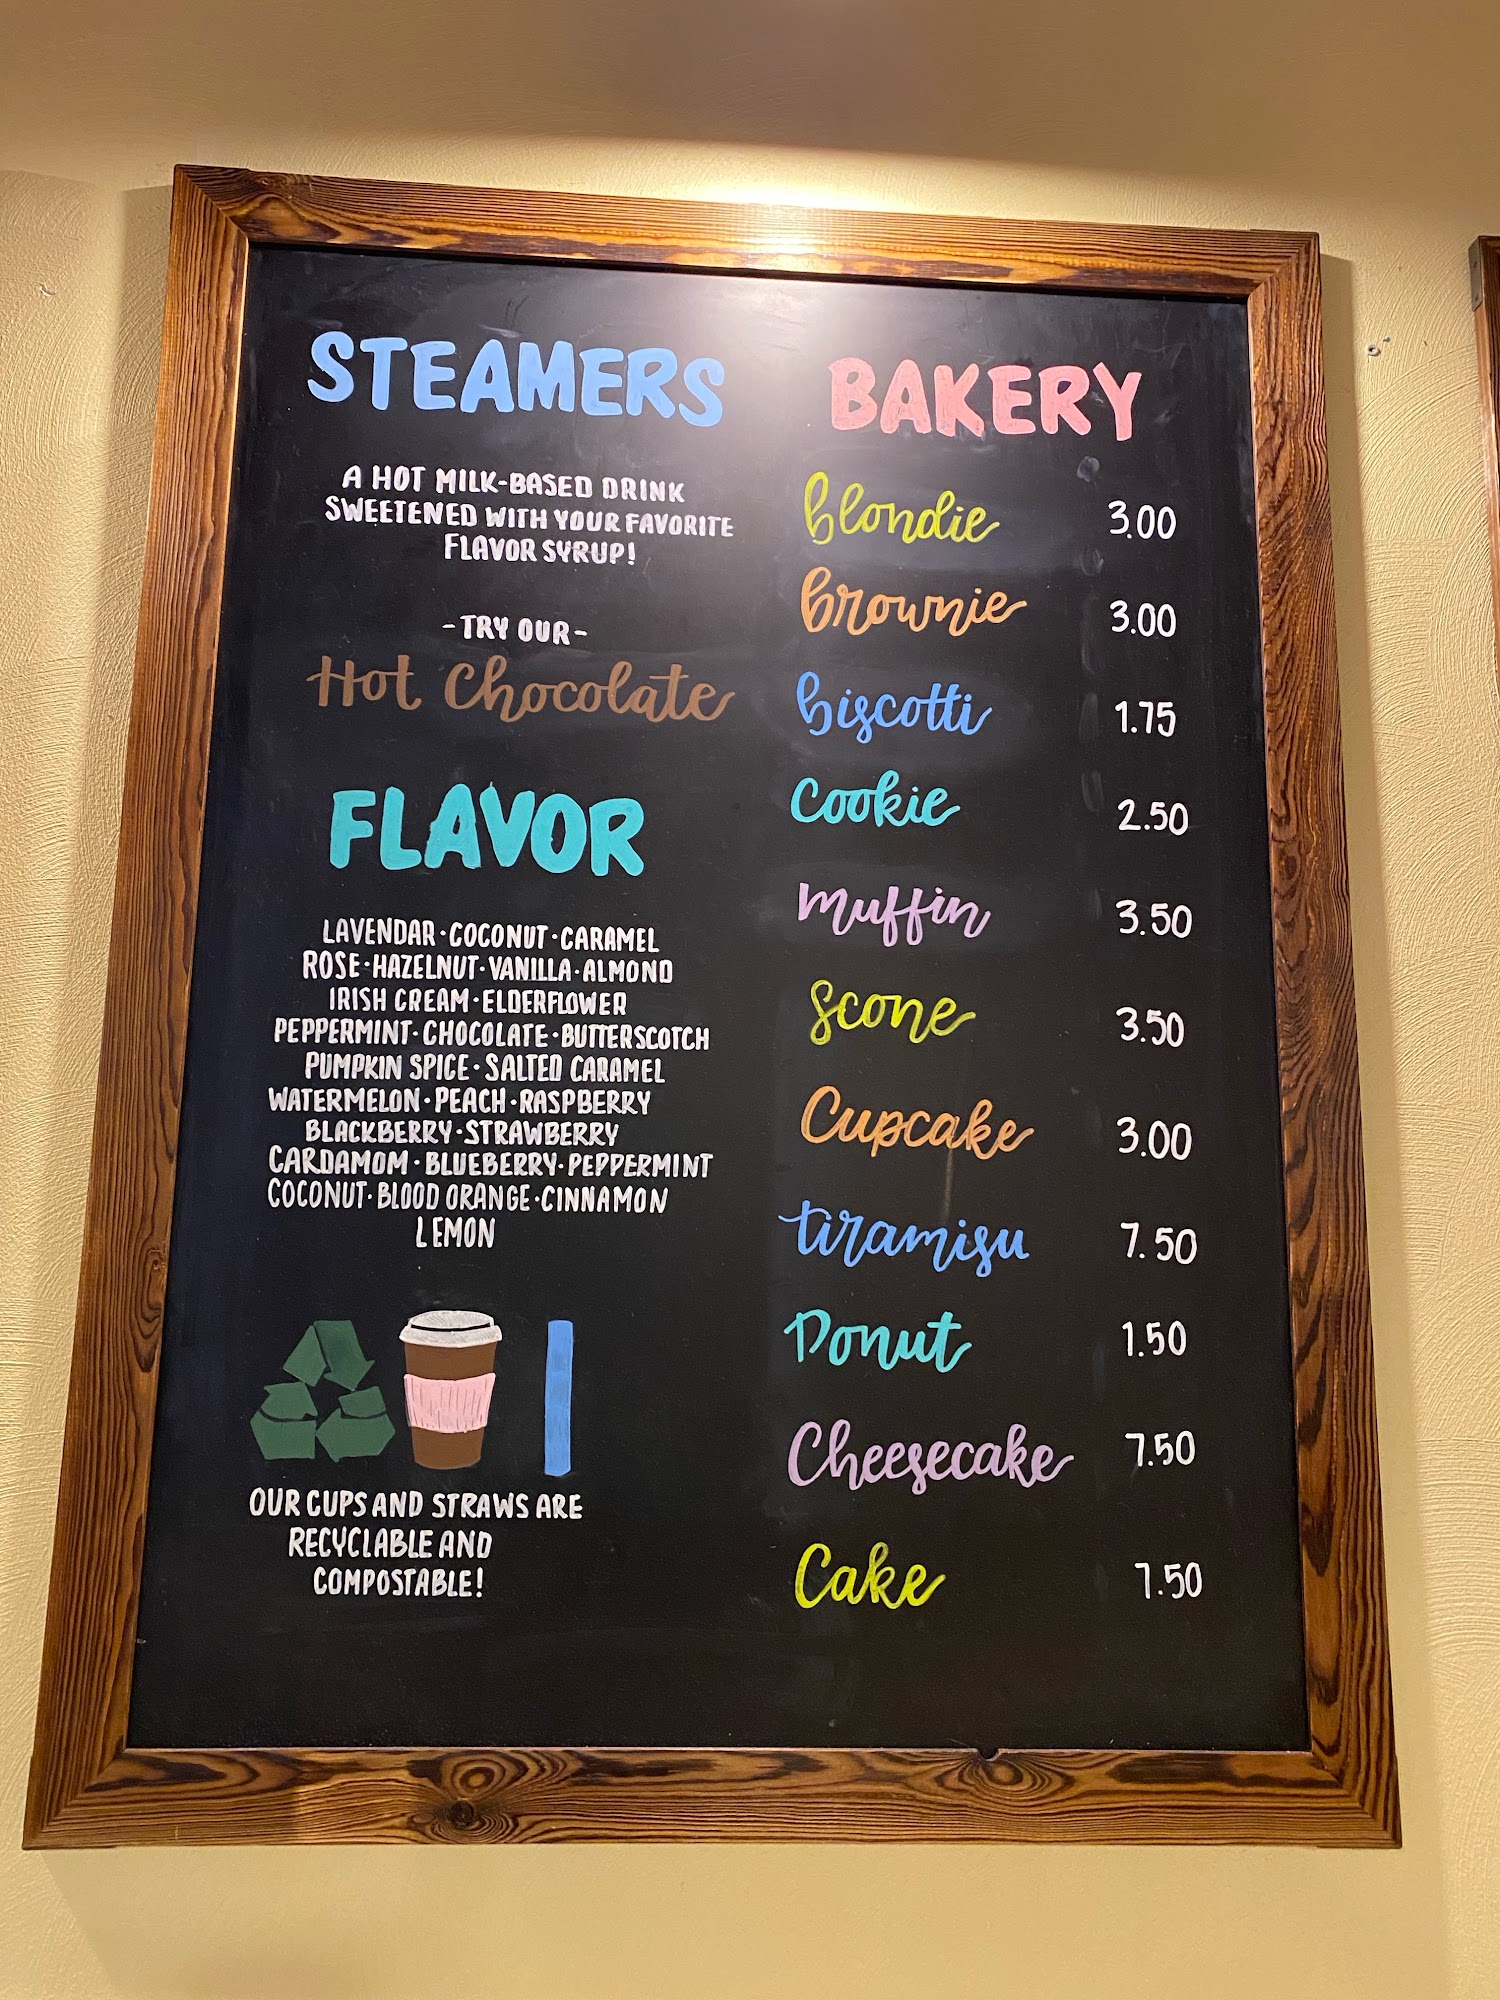 STEAMERS
A HOT MILK-BASED DRINK
SWEETENED WITH YOUR FAVORITE
FLAVOR SYRUP!
-TRY OUR-
Hot Chocolate
FLAVOR
LAVENDAR·COCONUT·CARAMEL
ROSE·HAZELNUT·VANILLA·ALMOND
IRISH CREAM·ELDERFLOWER
PEPPERMINT·CHOCOLATE·BUTTERSCOTCH
PUMPKIN SPICE·SALTED CARAMEL
WATERMELON·PEACH·RASPBERRY
BLACKBERRY·STRAWBERRY
CARDAMOM·BLUEBERRY·PEPPERMINT
COCONUT·BLOOD ORANGE·CINNAMON
LEMON
OUR CUPS AND STRAWS ARE
RECYCLABLE AND
COMPOSTABLE!
BAKERY
blondie 3.00
brownie 3.00
biscotti 1.75
cookie 2.50
muffin 3.50
scone 3.50
Cupcake 3.00
tiramisu 7.50
Donut 1.50
Cheesecake 7.50
Cake 7.50